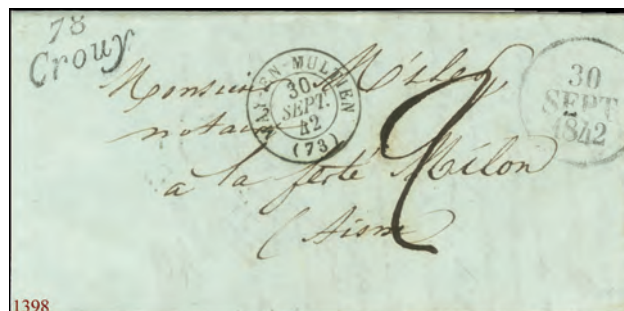 78
Crouy
MAY-EN-MULTIEN
30
SEPT.
42
(73)
30
SEPT
1842
Monsieur
notaire
a la ferté Milon
(Aisne)
2
1398